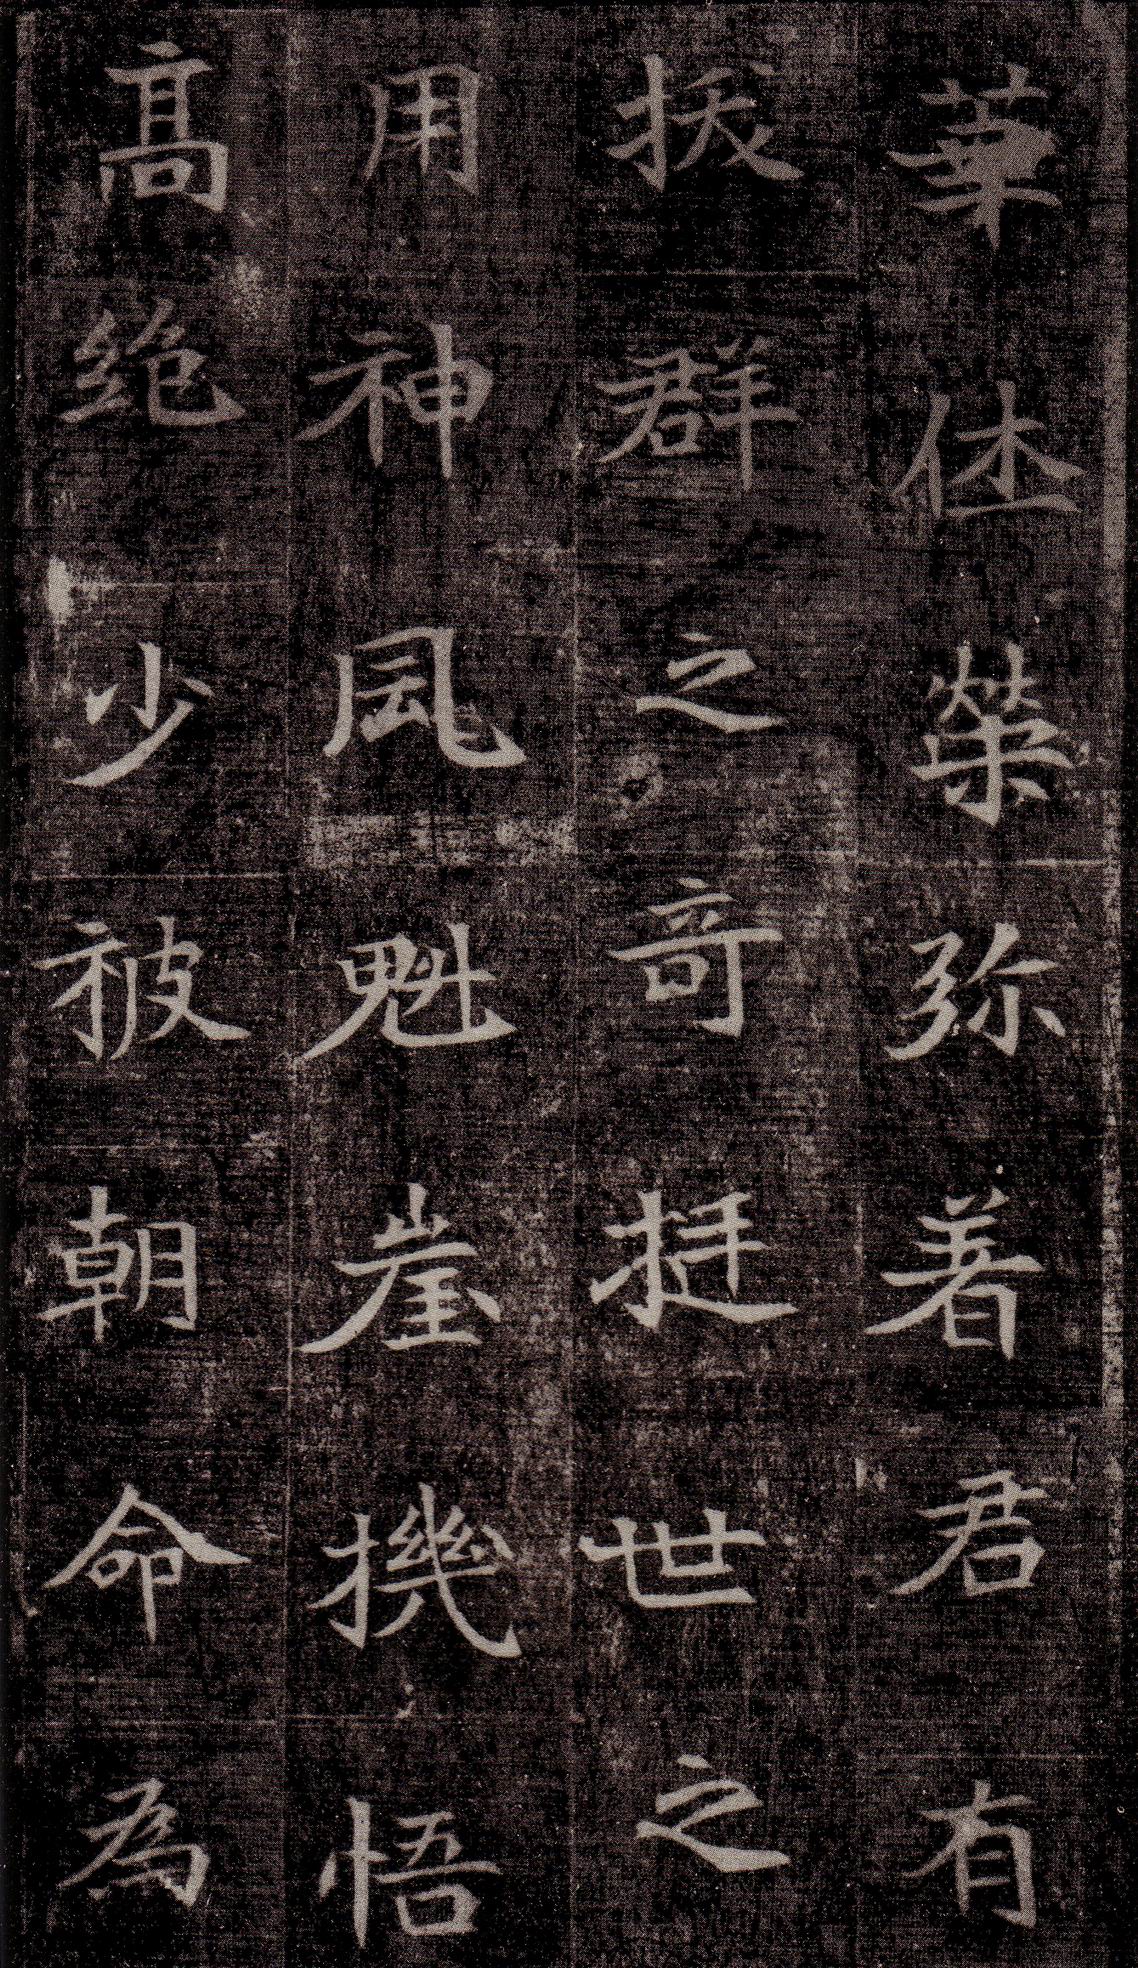 華仕榮弥著君有
拔群之奇挺世之
用神風魁崖機悟
髙絶少被朝命為